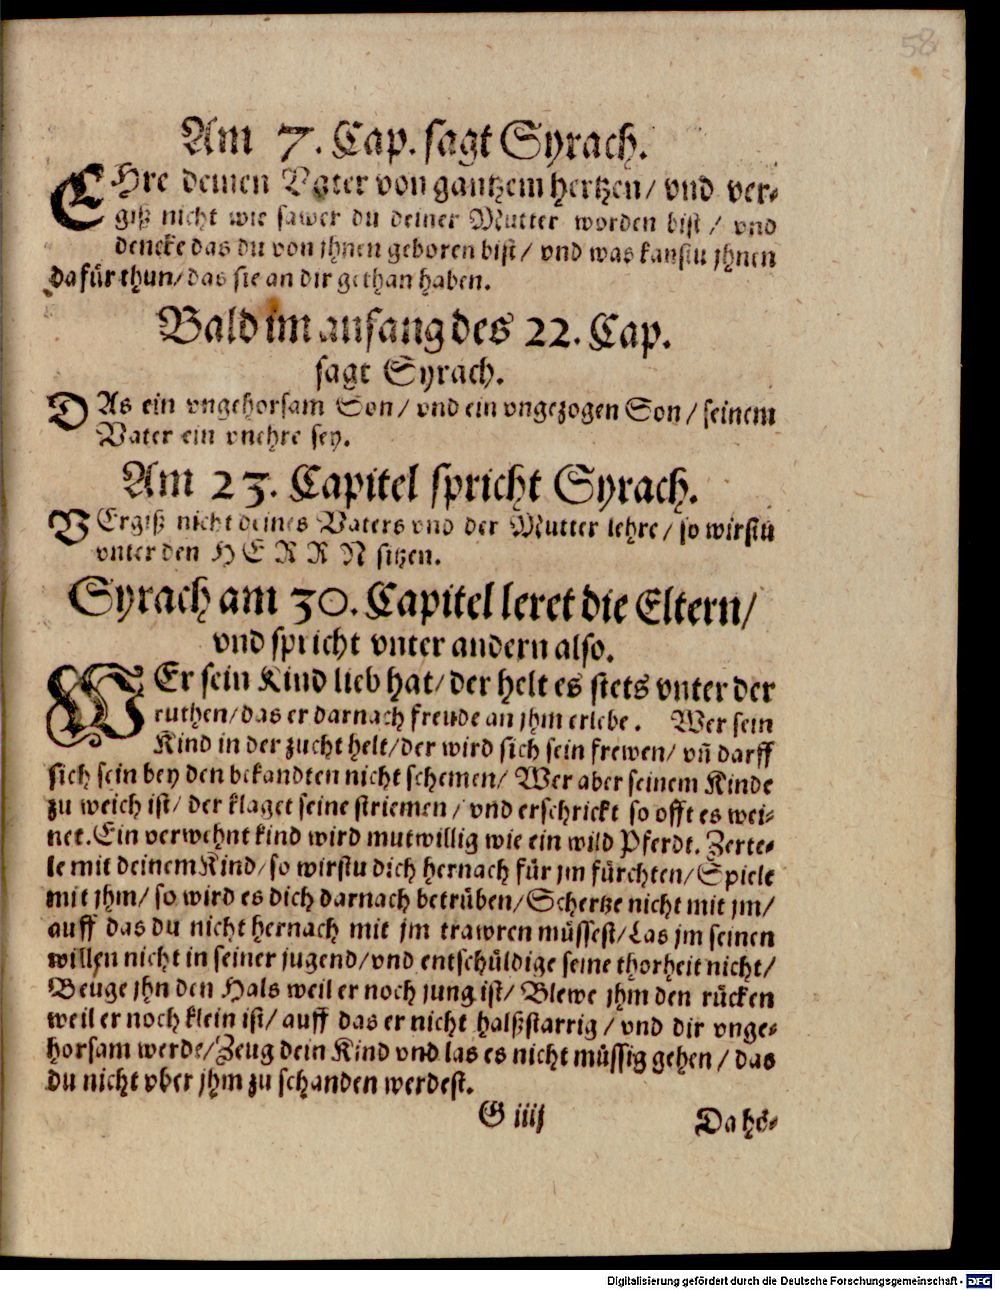 58
Am 7. Cap. sagt Syrach.
EHre deinen Vater von gantzem hertzen/ vnd ver-
giß nicht wie sawer du deiner Mutter worden bist/ vnd
dencke das du von jhnen geboren bist/ vnd was kanstu jhnen
dafür thun/ das sie an dir gethan haben.
Bald im anfang des 22. Cap.
sagt Syrach.
DAs ein vngehorsam Son/ vnd ein vngezogen Son/ seinem
Vater ein vnehre sey.
Am 23. Capitel spricht Syrach.
VErgiß nicht deines Vaters vnd der Mutter lehre/ so wirstu
vnter den HERRN sitzen.
Syrach am 30. Capitel leret die Eltern/
vnd spricht vnter andern also.
WEr sein Kind lieb hat/ der helt es stets vnter der
ruthen/ das er darnach freude an jhm erlebe. Wer sein
Kind in der zucht helt/ der wird sich sein frewen/ vñ darff
sich sein bey den bekandten nicht schemen/ Wer aber seinem Kinde
zu weich ist/ der klaget seine striemen/ vnd erschrickt so offt es wei-
net. Ein verwehnt kind wird mutwillig wie ein wild Pferdt. Zerte-
le mit deinem Kind/ so wirstu dich hernach für jm fürchten/ Spiele
mit jhm/ so wird es dich darnach betrüben/ Schertze nicht mit jm/
auff das du nicht hernach mit jm trawren müssest/ Las jm seinen
willen nicht in seiner jugend/ vnd entschüldige seine thorheit nicht/
Beuge jhn den Hals weil er noch jung ist/ Blewe jhm den rücken
weil er noch klein ist/ auff das er nicht halßstarrig/ vnd dir vnge-
horsam werde/ Zeug dein Kind vnd las es nicht müssig gehen/ das
du nicht vber jhm zu schanden werdest.
G iiij
Da hö-
Digitalisierung gefördert durch die Deutsche Forschungsgemeinschaft - DFG